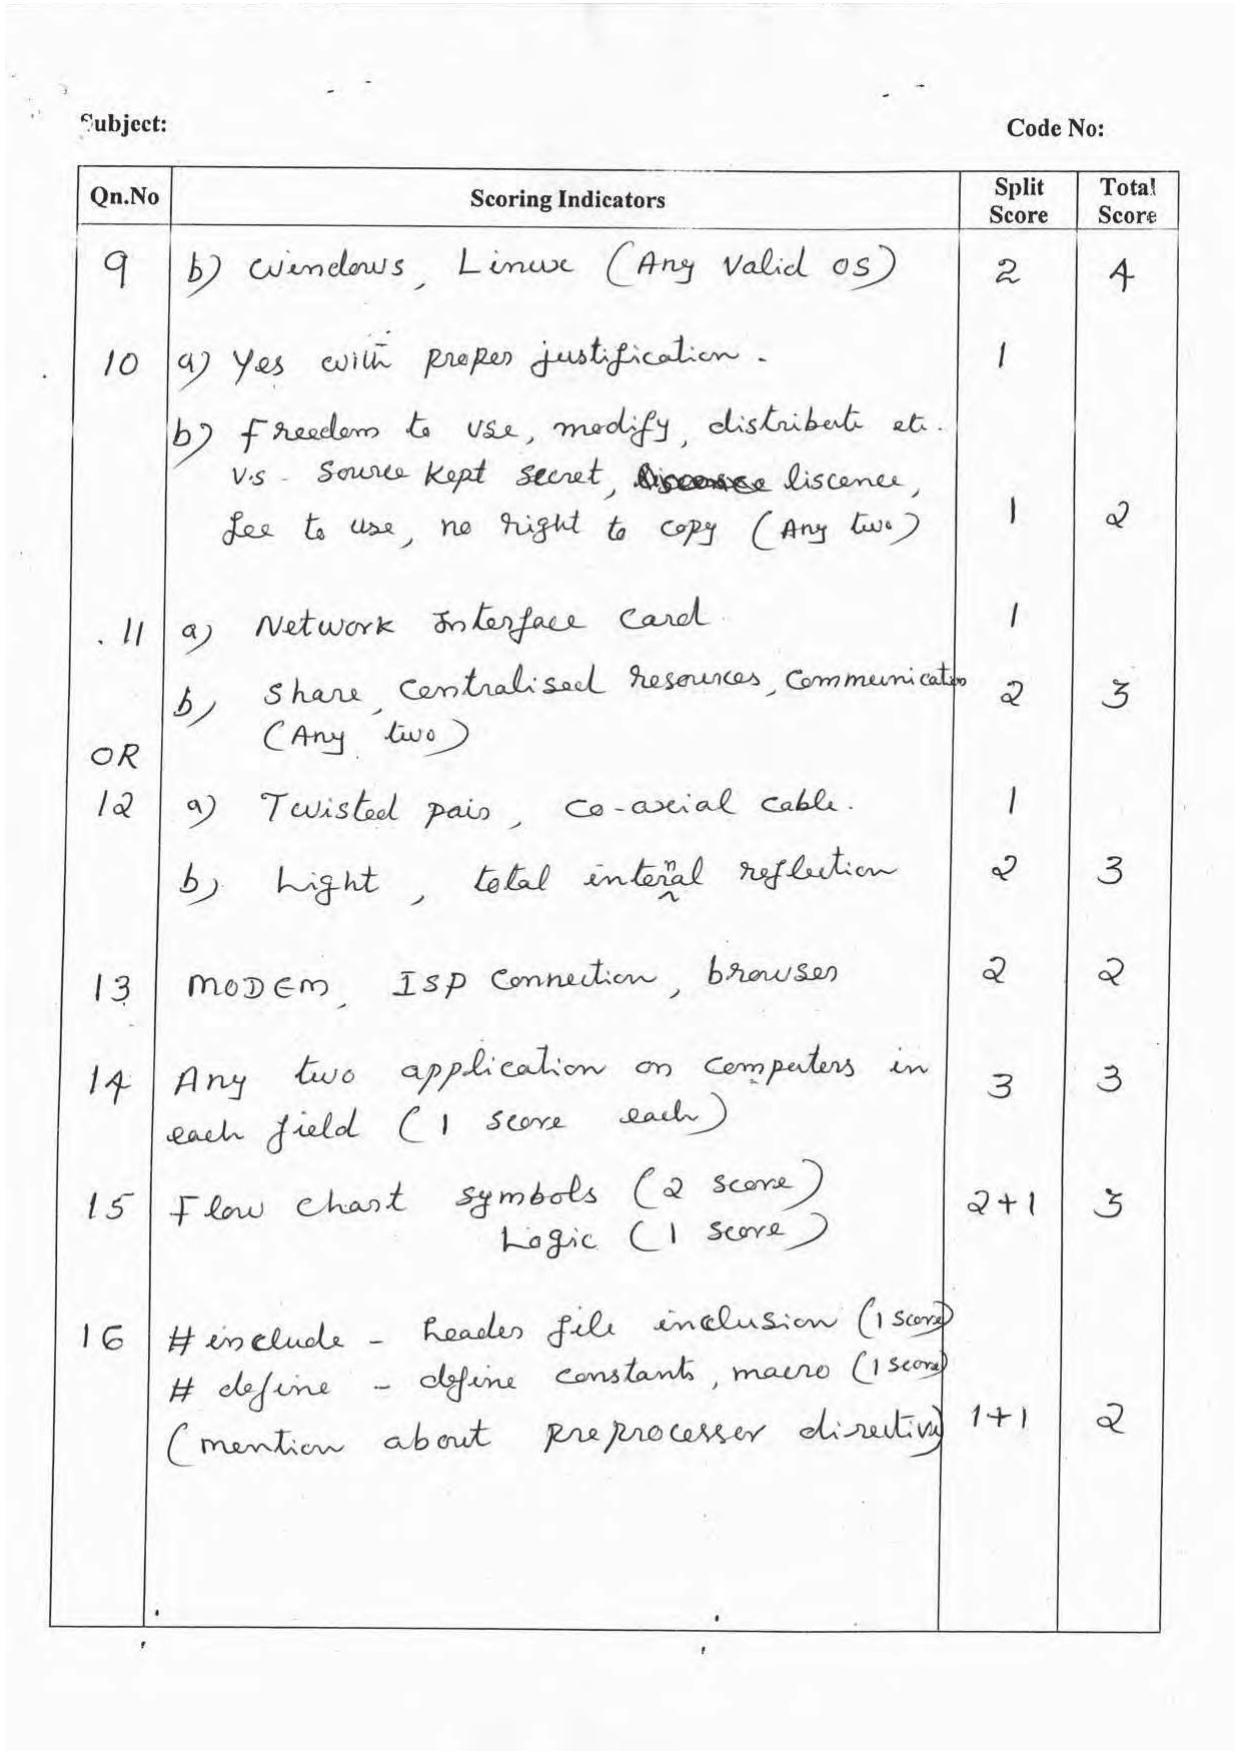 Subject:
Code No:
Qn.No Scoring Indicators Split Score Total Score
9 b) Windows, Linux (Any Valid OS) 2 4
10 a) Yes with proper justification. 1
b) Freedom to use, modify, distribute etc.
v.s - Source kept secret, liscence,
fee to use, no right to copy (Any two) 1 2
11 a) Network Interface Card 1
b) Share, centralised resources, Communication 2 3
(Any two)
OR
12 a) Twisted pair, co-axial cable. 1
b) Light, total internal reflection 2 3
13 MODEM, ISP Connection, browser 2 2
14 Any two application on computers in 3 3
each field (1 score each)
15 Flow chart symbols (2 score) 2+1 3
Logic (1 score)
16 #include - header file inclusion (1 score)
# define - define constants, macro (1 score)
(mention about preprocesser directive) 1+1 2